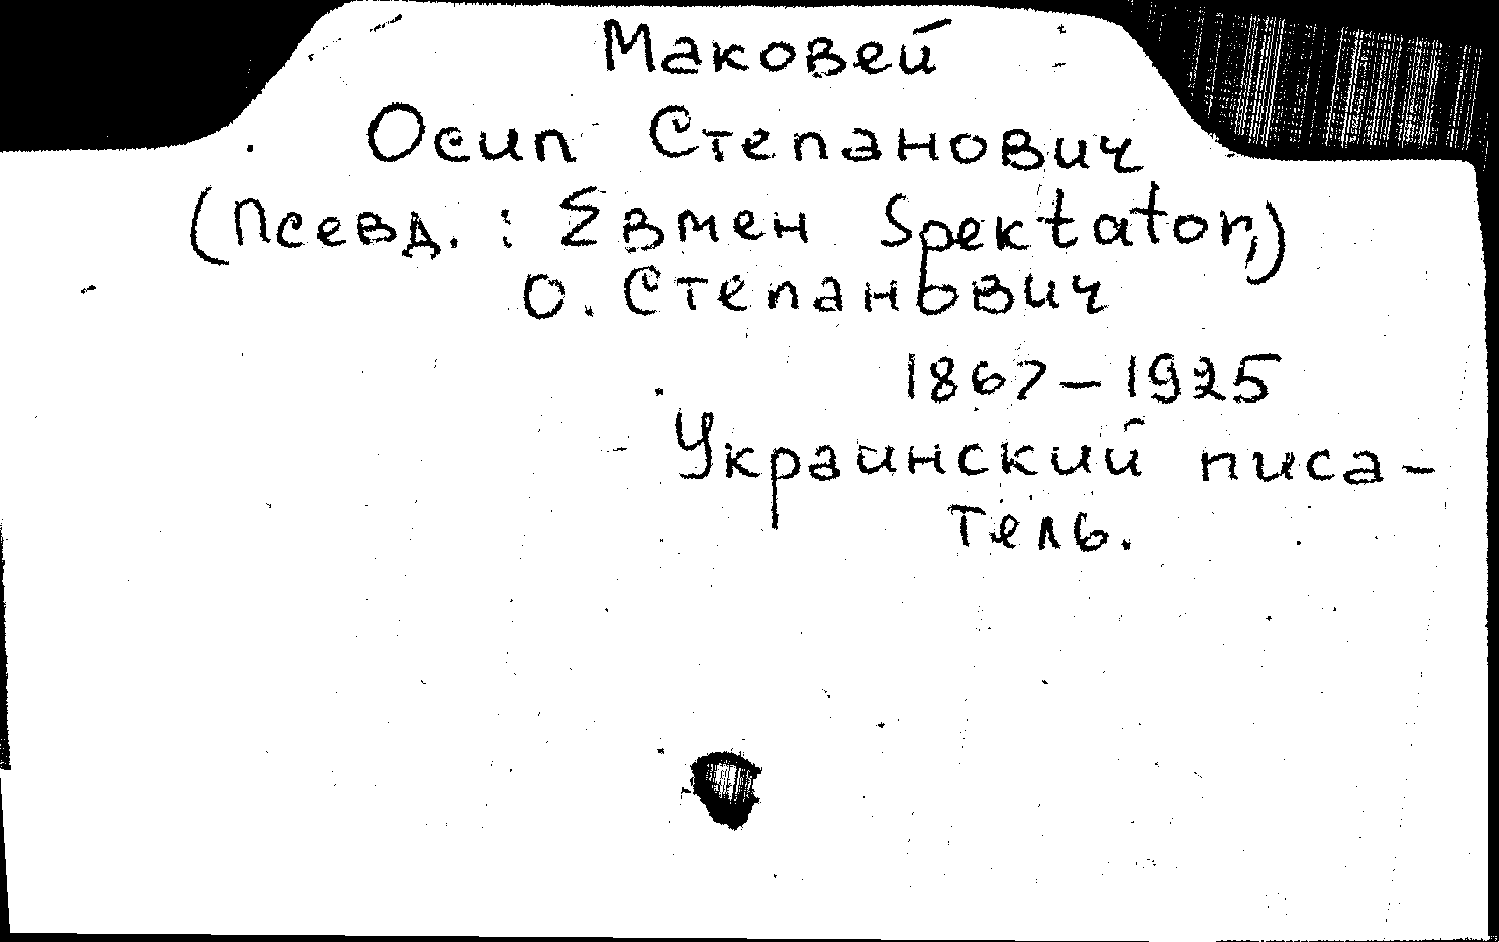 Маковей
Осип Степанович
(Псевд. : Евмен Spektator,)
О. Степанович
1867-1925
Украинский писа-
тель.